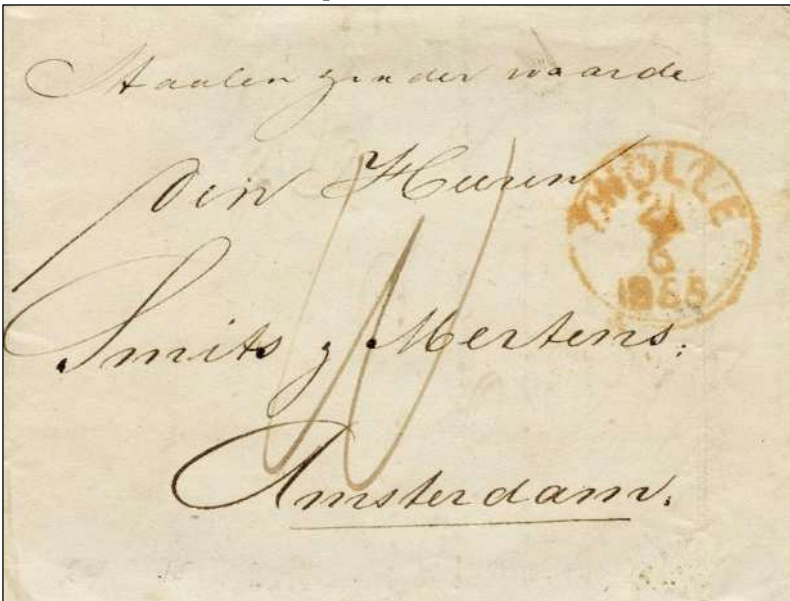 Staalen zonder waarde
Den Heeren
ZWOLLE
6
1868
Smits & Mertens.
Amsterdam.